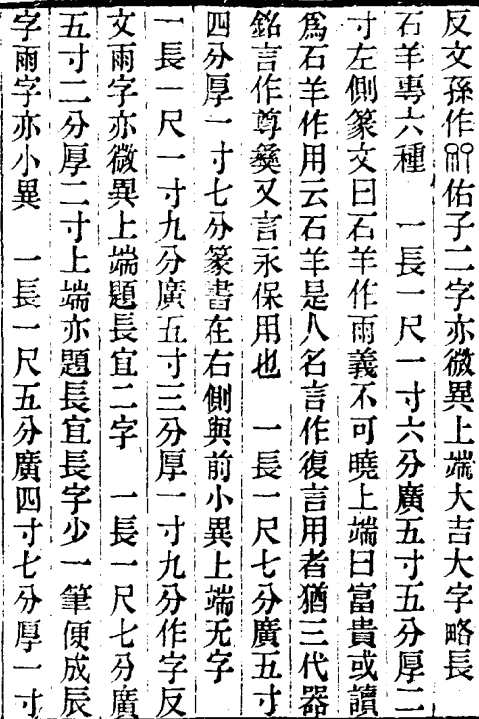 反文孫作𠨍佑子二字亦微異上端大吉大字略長
石羊專六種　一長一尺一寸六分廣五寸五分厚二
寸左側篆文曰石羊作雨義不可曉上端曰富貴或讀
爲石羊作用云石羊是人名言作復言用者猶三代器
銘言作尊彝又言永保用也　一長一尺七分廣五寸
四分厚一寸七分篆書在右側與前小異上端无字
一長一尺一寸九分廣五寸三分厚一寸九分作字反
文雨字亦微異上端題長宜二字　一長一尺七分廣
五寸二分厚二寸上端亦題長宜長字少一筆便成辰
字雨字亦小異　一長一尺五分廣四寸七分厚一寸